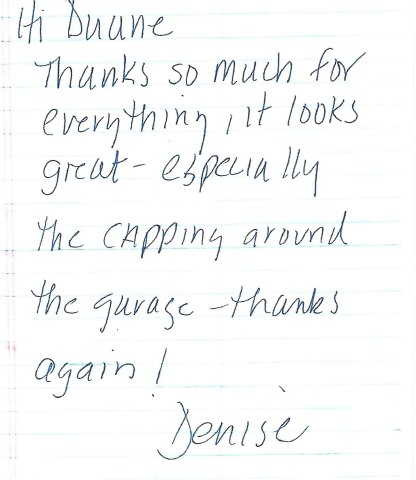 Hi Duane
Thanks so much for
everything, it looks
great - especially
the capping around
the garage - thanks
again!
Denise